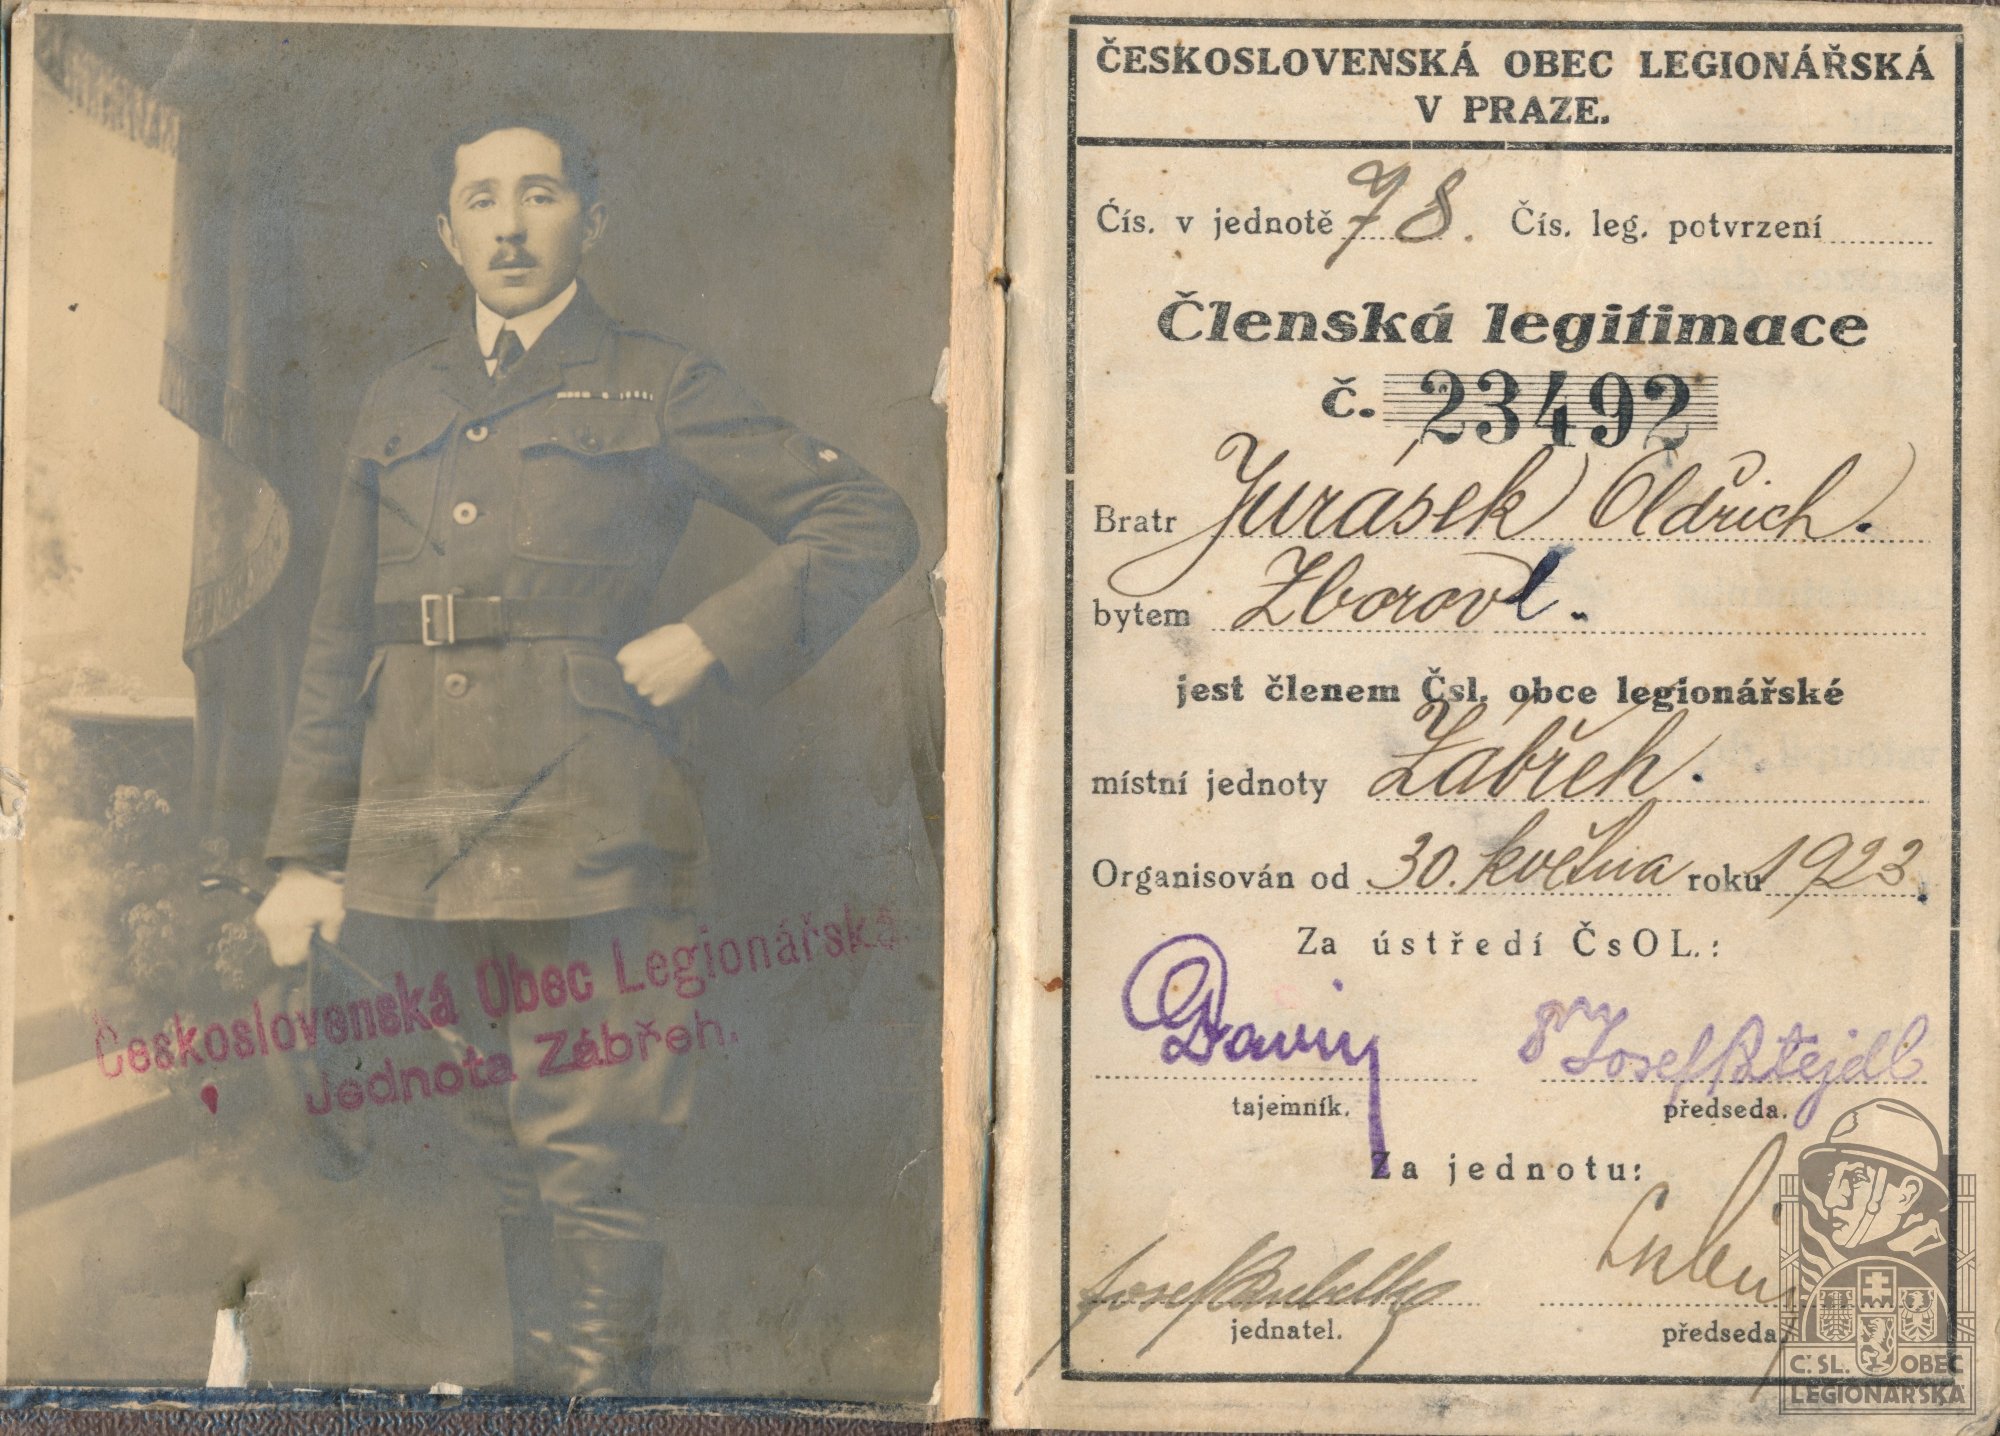 Československá Obec Legionářská
Jednota Zábřeh.
ČESKOSLOVENSKÁ OBEC LEGIONÁŘSKÁ
V PRAZE.
Čís. v jednotě 78. Čís. leg. potvrzení
Členská legitimace
č. 23492
Bratr Jurásek Oldřich.
bytem Zborov
jest členem Čsl. obce legionářské
místní jednoty Zábřeh.
Organisován od 30. května roku 1923.
Za ústředí ČsOL.:
Josef Patejdl
tajemník. předseda.
Za jednotu:
Josef
jednatel. předseda
Č. SL. OBEC
LEGIONÁŘSKÁ